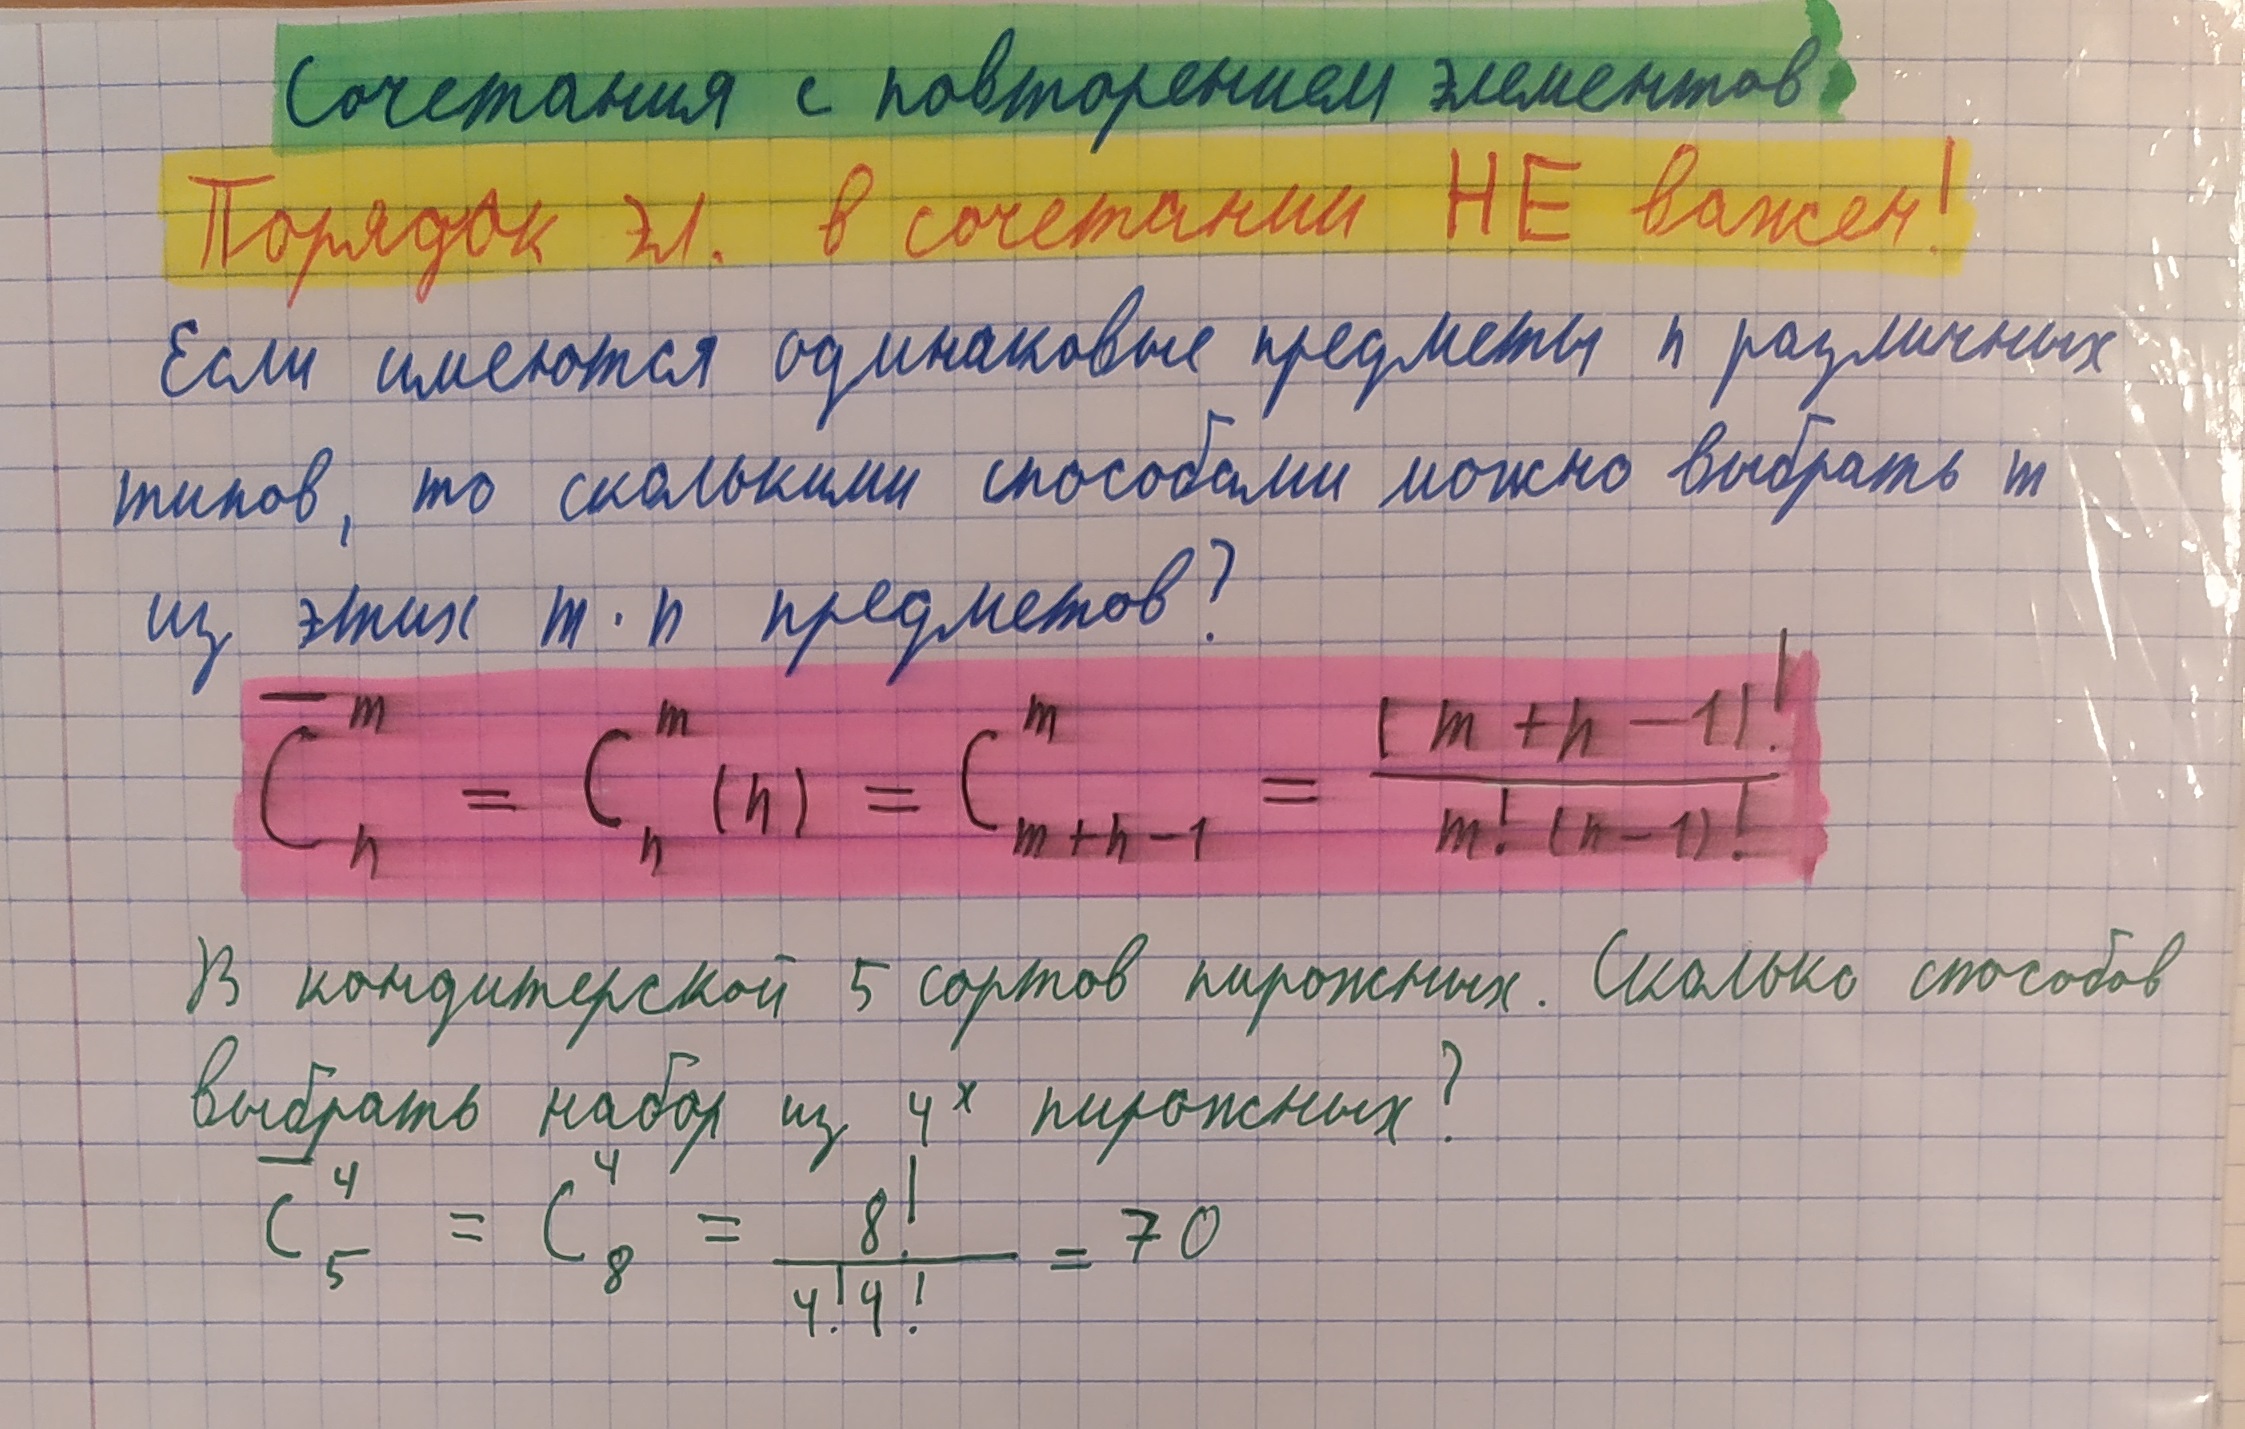 Сочетания с повторением элементов
Порядок эл. в сочетании НЕ важен!
Если имеются одинаковые предметы n различных
типов, то сколькими способами можно выбрать m
из этих m · n предметов?
C̅ₙᵐ = Cₙᵐ (n) = Cₘ₊ₙ₋₁ᵐ = (m + n - 1)! / m! (n - 1)!
В кондитерской 5 сортов пирожных. Сколько способов
выбрать набор из 4ˣ пирожных?
C̅₅⁴ = C₈⁴ = 8! / 4! 4! = 70